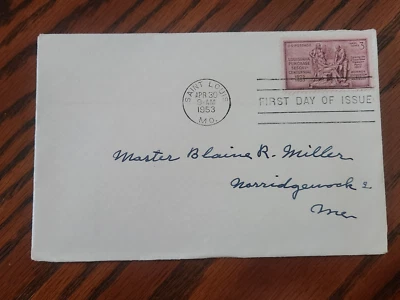 SAINT LOUIS
APR 30
9-AM
1953
MO.
LOUISIANA
PURCHASE
FIRST DAY OF ISSUE
Master Blaine R. Miller
Norridgewock
Me